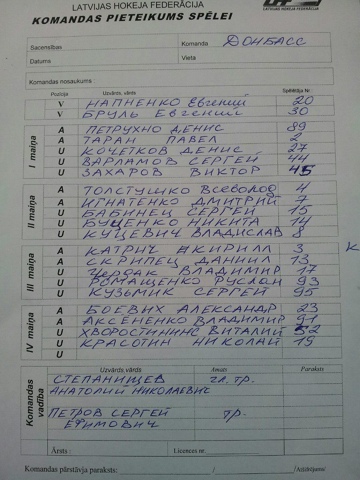 LATVIJAS HOKEJA FEDERĀCIJA
KOMANDAS PIETEIKUMS SPĒLEI
LATVIJAS HOKEJA FEDERĀCIJA
Sacensības Komanda ДОНБАСС
Datums Vieta
Komandas nosaukums
Pozīcija Uzvārds, vārds Spēlētāja Nr
V НАПНЕНКО Евгений 20
V БРУЛЬ Евгений 30
I maiņa
A ПЕТРУХНО ДЕНИС 89
A ТАРАН ПАВЕЛ 2
U КОЧЕТКОВ ДЕНИС 27
U ВАРЛАМОВ СЕРГЕЙ 44
U ЗАХАРОВ ВИКТОР 45
II maiņa
A ТОЛСТУШКО ВСЕВОЛОД 4
A ИГНАТЕНКО ДМИТРИЙ 7
U БАБИНЕЦ СЕРГЕЙ 15
U БУЦЕНКО НИКИТА 14
U КУЦЕВИЧ ВЛАДИСЛАВ 8
III maiņa
A КАТРИЧ КИРИЛЛ 3 К
A СКРИПЕЦ ДАНИИЛ 13
U ЧЕРДАК ВЛАДИМИР 17
U РОМАЩЕНКО РУСЛАН 93
U КУЗЬМИК СЕРГЕЙ 95
IV maiņa
A БОЕВИХ АЛЕКСАНДР 23
A АКСЕНЕНКО ВЛАДИМИР 91
U ХВОРОСТИНИНО ВИТАЛИЙ 52
U КРАСОТИН НИКОЛАЙ 19
U
Komandas vadība
Uzvārds, vārds Amats Paraksts
СТЕПАНИЩЕВ гл. тр.
АНАТОЛИЙ НИКОЛАЕВИЧ
ПЕТРОВ СЕРГЕЙ тр.
ЕФИМОВИЧ
Ārsts : Licences nr.
Komandas pārstāvja paraksts: / /Atšifrējums/